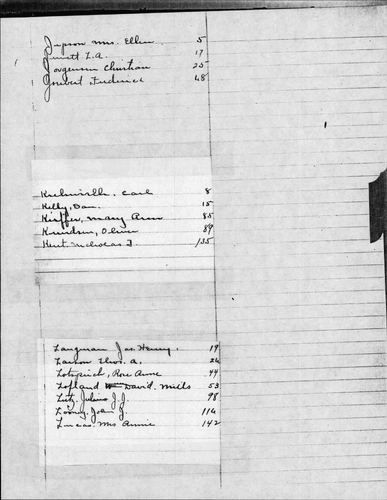 Jepson Mrs. Ellen 5
Jewett L.A. 17
Jorgensen Christian 25
Joubert Frederick 48
Carl 8
Kelly, Dan. 15
Kieffer, Mary Ann 85
Knudsen, Oliver 89
Kent, Nicholas J. 135
Langman Jas. Henry. 19
Larson Thos. A. 26
Lotspeich, Rose Anne 44
Lofland David Mills 53
Lutz, Julius J.J. 98
Looney, John J. 116
Lucas Mrs Annie 142